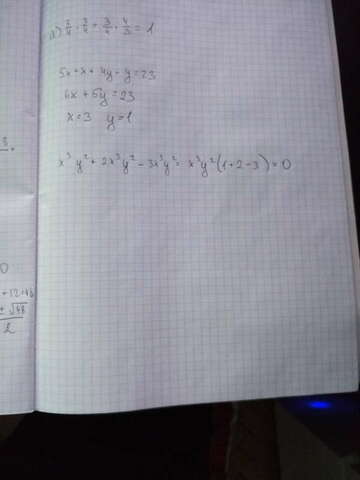 a) 3/4 : 3/4 = 3/4 · 4/3 = 1
5x + x + 4y - y = 23
6x + 5y = 23
x = 3 y = 1
x³y² + 2x³y² - 3x³y² = x³y²(1+2-3) = 0